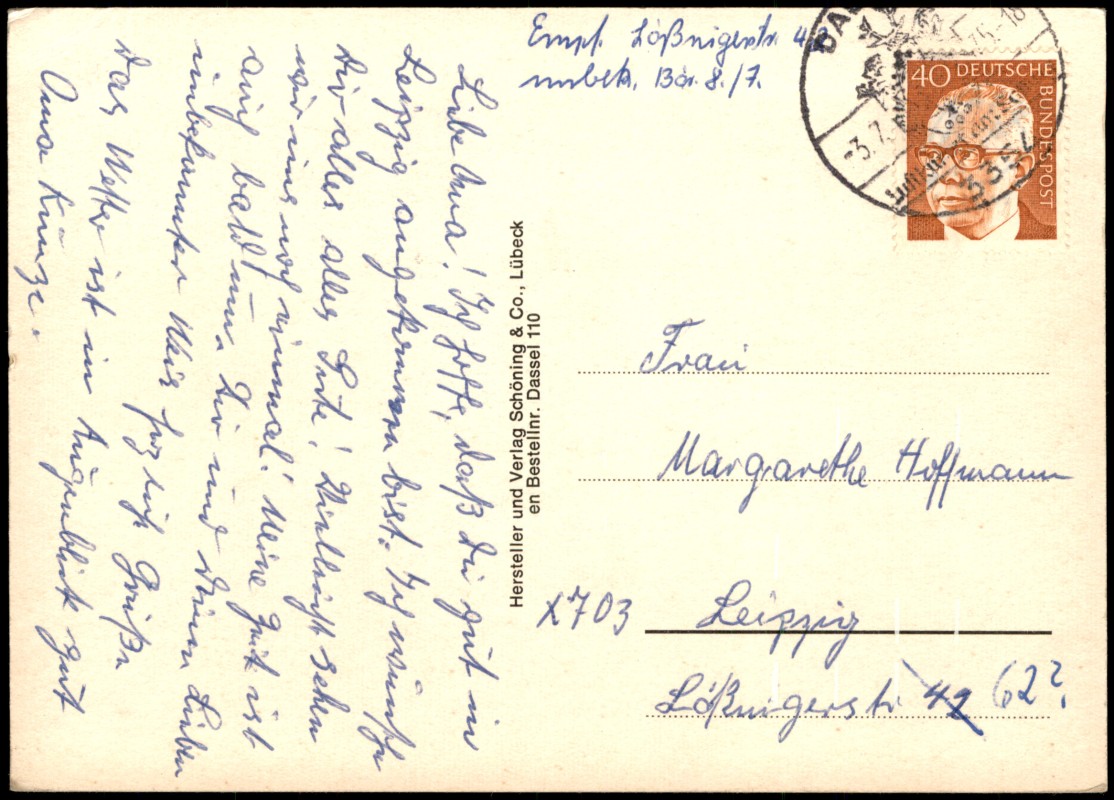 Empf. Lößnigerstr. 42
unbek., Bia 8./7.
40 DEUTSCHE
BUNDESPOST
-3.7.
75-18
3352
Liebe Anna! Ich hoffe, daß Du gut in
Leipzig angekommen bist. Ich wünsche
Dir alles alles Gute! Vielleicht sehen
wir uns noch einmal! Meine Zeit ist
auch bald um. Dir und Deinen Lieben
unbekannter Weis herzlich Grüße
Das Wetter ist im Augenblick gut
Anna Kunze.
Hersteller und Verlag Schöning & Co., Lübeck
en Bestellnr. Dassel 110
Frau
Margarethe Hoffmann
X703 Leipzig
Lößnigerstr. 42 62?